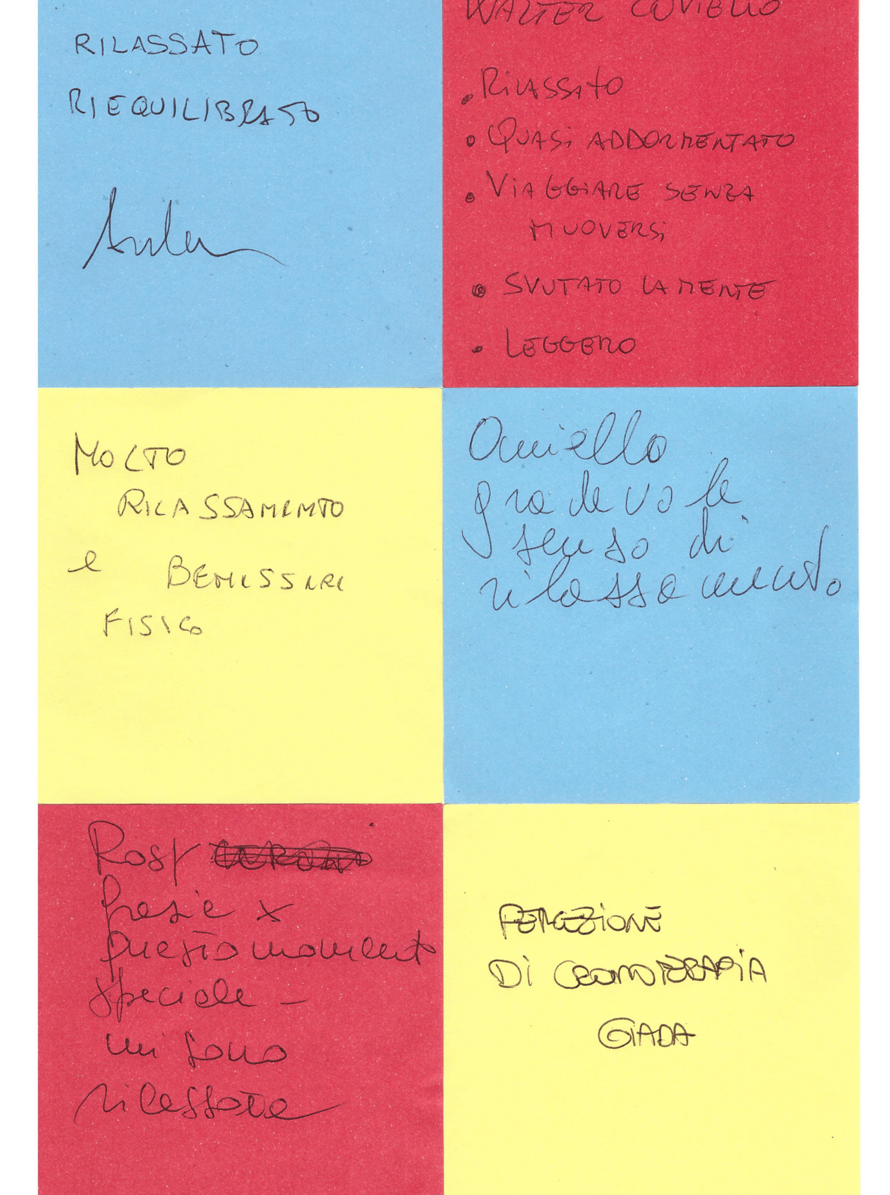 RILASSATO
RIEQUILIBRATO
WALTER COVIELLO
• RILASSATO
• QUASI ADDORMENTATO
• VIAGGIARE SENZA
MUOVERSI
• SVUTATO LA MENTE
• LEGGERO
MOLTO
RILASSAMENTO
e BENESSERE
FISICO
Aniello
gradevole
senso di
rilassamento
Rosy
Grazie x
questo momento
speciale –
mi sono
rilassata
PERCEZIONE
DI CROMOTERAPIA
GIADA